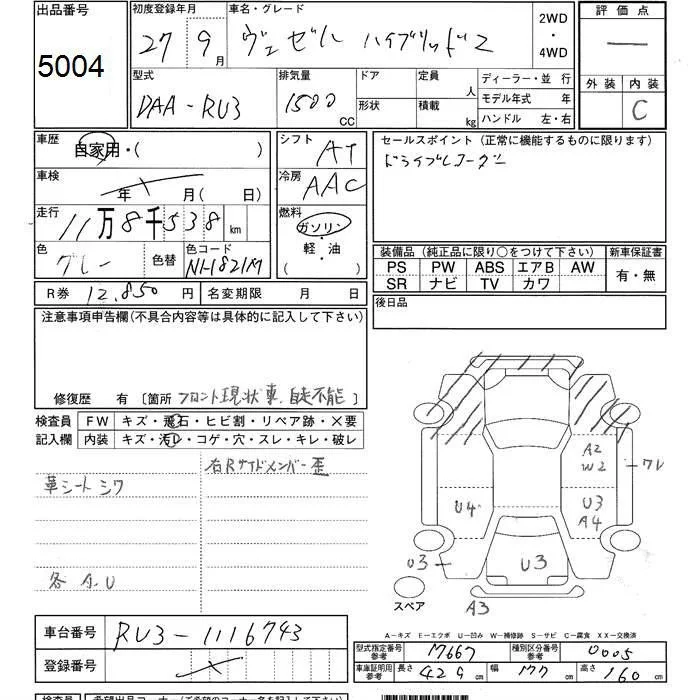 出品番号
5004
初度登録年月
27 9月
車名・グレード
ヴェゼル ハイブリッドZ
2WD
・
4WD
評価点
—
外装 内装
C
型式
DAA-RU3
排気量
1500 CC
ドア
形状
定員 人
積載 kg
ディーラー・並 行
モデル年式 年
ハンドル 左・右
車歴
自家用・( )
車検
年 月( 日)
走行
11万8千538 km
色
グレー
色替
色コード
NH-821M
R券 12.850 円
名変期限 月 日
シフト
AT
冷房
AAC
燃料
ガソリン
・
軽・油
( )
セールスポイント(正常に機能するものに限ります)
ドライブレコーダー
装備品(純正品に限り○をつけて下さい)
PS PW ABS エアB AW
SR ナビ TV カワ
新車保証書
有・無
後日品
注意事項申告欄(不具合内容等は具体的に記入して下さい)
修復歴 有 [箇所 フロント現状車、自走不能]
検査員
記入欄
FW キズ・飛石・ヒビ割・リペア跡・X要
内装 キズ・汚レ・コゲ・穴・スレ・キレ・破レ
右Rサイドメンバー歪
革シートシワ
各A.U
A2
W2
ワレ
U4
U3
A4
U3
U3
A3
スペア
A−キズ E−エクボ U−凹み W−補修跡 S−サビ C−腐食 XX−交換済
車台番号 RU3-1116743
登録番号
型式指定番号
参考
17667
種別区分番号
参考
0005
車庫証明用
参考
長さ 429 cm 幅 177 cm 高さ 160 cm
検査員
希望出品コーナー(ご希望のコーナー名を記入して下さい)